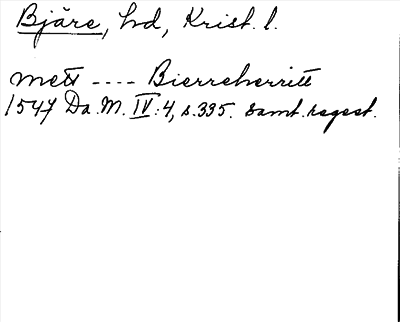 Bjäre, hd, Krist. l.
mett ---- Bierreherritt
1547 Da. M. IV:4, s. 335. Samt. regest.